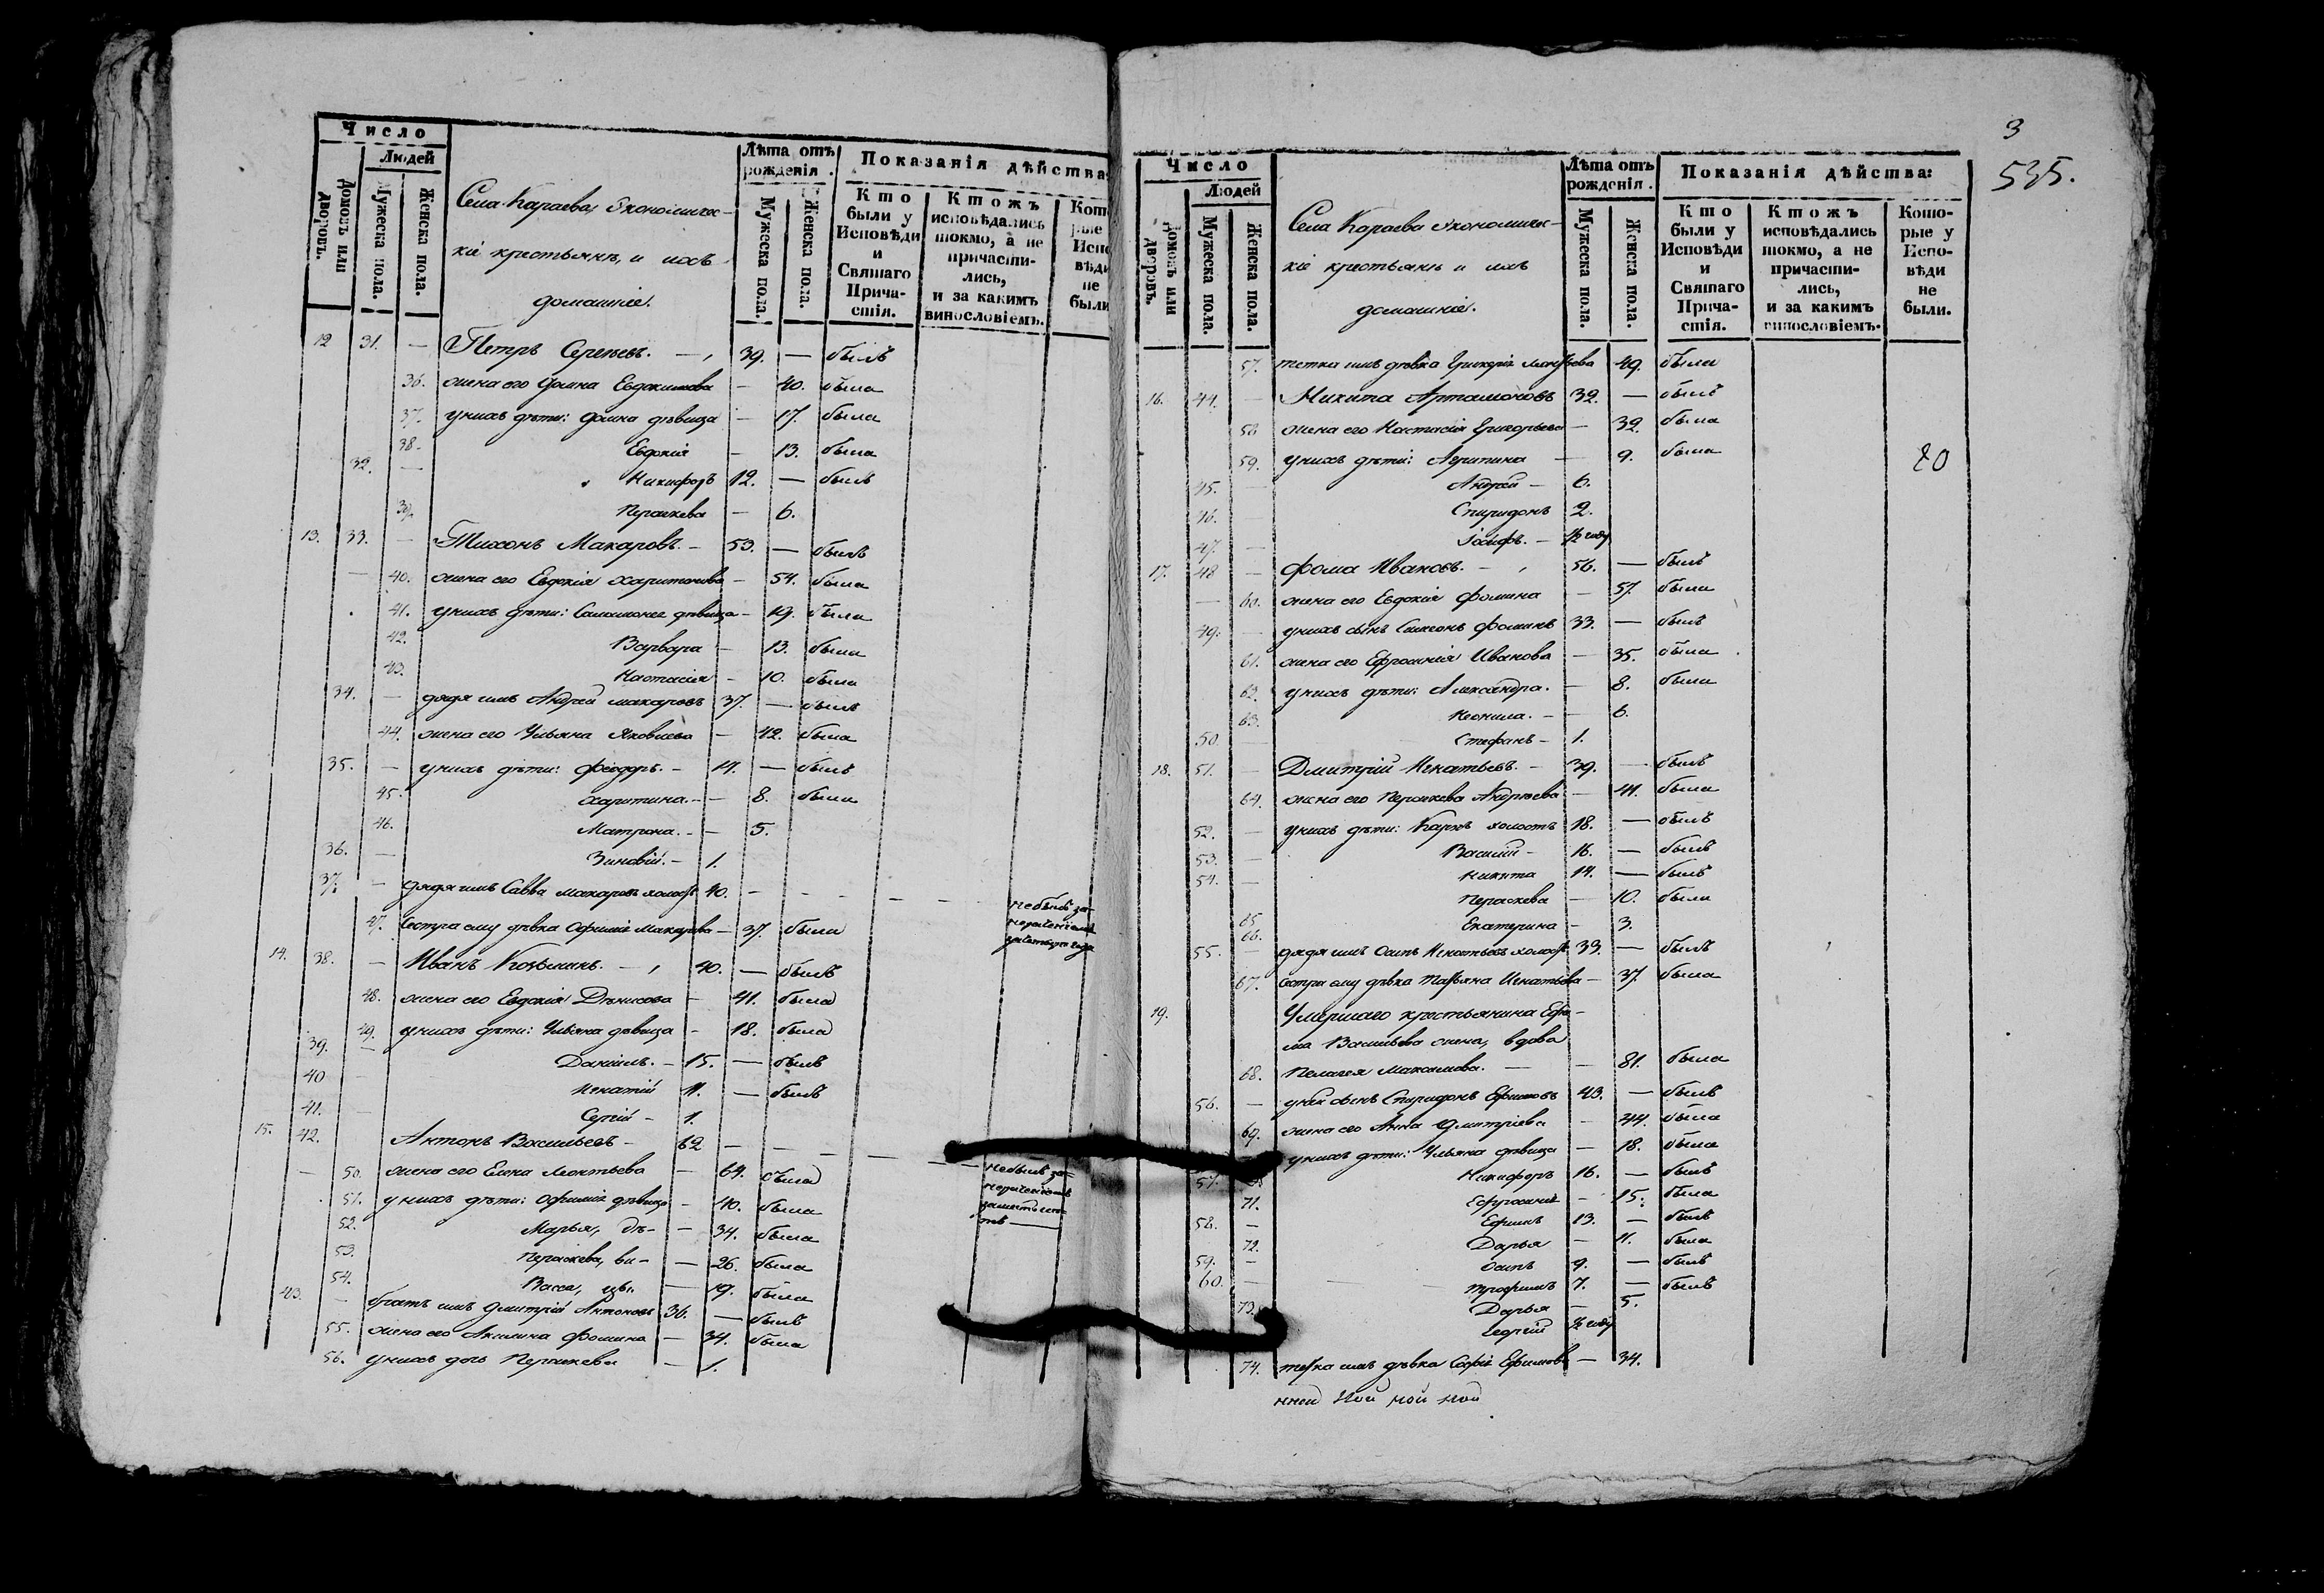 Число
Людей
Домовъ или дворовъ.
Мужеска пола.
Женска пола.
Села Караева экономичес-
кіе крестьяне, и ихъ
домашніе.
Лѣта отъ рожденія.
Мужеска пола.
Женска пола.
Показанія дѣйства:
Кто были у Исповѣди и Святаго Причастія.
Ктожъ исповѣдались токмо, а не причастились, и за какимъ винословіемъ.
12 31. — Петръ Сергеевъ. — 39. — былъ
36. жена его Фаина Евдокимова — 40. была
37. у нихъ дѣти: Фаина дѣвица — 17. была
38. Евдокія — 13. была
32. — Никифоръ 12. — былъ
39. Параскева — 6.
13. 33. — Тихонъ Макаровъ. — 53. — былъ
— 40. жена его Евдокія Харитонова — 54. была
41. у нихъ дѣти: Соломонія дѣвица — 19. была
42. Варвара — 13. была
43. Настасія — 10. была
34. — дядя имъ Андрей Макаровъ 37. — былъ
44. жена его Ульяна Яковлева — 42. была
35. — у нихъ дѣти: Феодоръ. — 14. — былъ
45. Харитина. — — 8. была
46. Матрона. — — 5.
36. — Зиновій. — 1.
37. — дядя имъ Савва Макаровъ холостъ 40. — — — — — не былъ за
47. сестра ему дѣвка Офимія Макарова — 37. была
14. 38. — Иванъ Козьминъ. — 40. — былъ
48. жена его Евдокія Денисова — 41. была
49. у нихъ дѣти: Ульяна дѣвица — 18. была
39. — Даніилъ. — 15. — былъ
40 — Игнатій 11. — былъ
41. — Сергій — 1.
15. 42. Антонъ Васильевъ — 62 — — — — — не былъ за
— 50. жена его Елена Леонтьева — 64. была
51. у нихъ дѣти: Офимія дѣвица — 40. была
52. Марья, дѣ- — 34. была
53. Параскева, ви- — 26. была
54. Васса, цы. — 19. была
43. — братъ имъ Дмитрій Антоновъ 36. — былъ
55. жена его Акилина Фомина — 34. была
56. у нихъ дочь Параскева — 1.
3
535.
Число
Людей
Домовъ или дворовъ.
Мужеска пола.
Женска пола.
Села Караева экономичес-
кіе крестьяне и ихъ
домашніе.
Лѣта отъ рожденія.
Мужеска пола.
Женска пола.
Показанія дѣйства:
Кто были у Исповѣди и Святаго Причастія.
Ктожъ исповѣдались токмо, а не причастились, и за какимъ винословіемъ.
Которые у Исповѣди не были.
57. тетка имъ дѣвка 49. была
16. 44. — Никита Артамоновъ 32. — былъ
58 жена его Настасія Григорьева — 32. была
59. у нихъ дѣти: Агрипина — 9. была
20
45. — Андрей — 6.
46. — Спиридонъ 2.
47. — Іосифъ. — ½ году
17. 48 — Фома Ивановъ. — 56. — былъ
— 60. жена его Евдокія Фомина — 57. была
49. — у нихъ сынъ Симеонъ Фоминъ 33. — былъ
61. жена его Ефросинія Иванова — 35. была
62. у нихъ дѣти: Александра. — 8. была
63. Неонила. — — 6.
50. — Стефанъ — 1.
18. 51. — Дмитрій Игнатьевъ. — 39. — былъ
64. жена его Параскева Андреева — 41. была
52. — у нихъ дѣти: Карпъ холостъ 18. — былъ
53. — Василій — 16. — былъ
54. — Никита 14. — былъ
65 Параскева — 10. была
66. Екатерина — 3.
55. — дядя имъ Осипъ Игнатьевъ холостъ 33. — былъ
67. сестра ему дѣвка Татьяна Игнатьева — 37. была
19. Умершаго крестьянина Ефи-
ма Васильева жена, вдова
68. Пелагея Максимова. — — 81. была
56. — у ней сынъ Спиридонъ Ефимовъ 43. — былъ
69. жена его Анна Дмитріева — 44. была
у нихъ дѣти: Ульяна дѣвица — 18. была
57. Никифоръ 16. — былъ
71. Ефросинія — 15. была
58. — Ефимъ 13. — былъ
72. Дарья — 11. была
59. — Осипъ 9. — былъ
60. — Трофимъ 7. — былъ
73. Дарья — 5.
Георгій ½ году
74. тетка имъ дѣвка Софія Ефимова — 34.